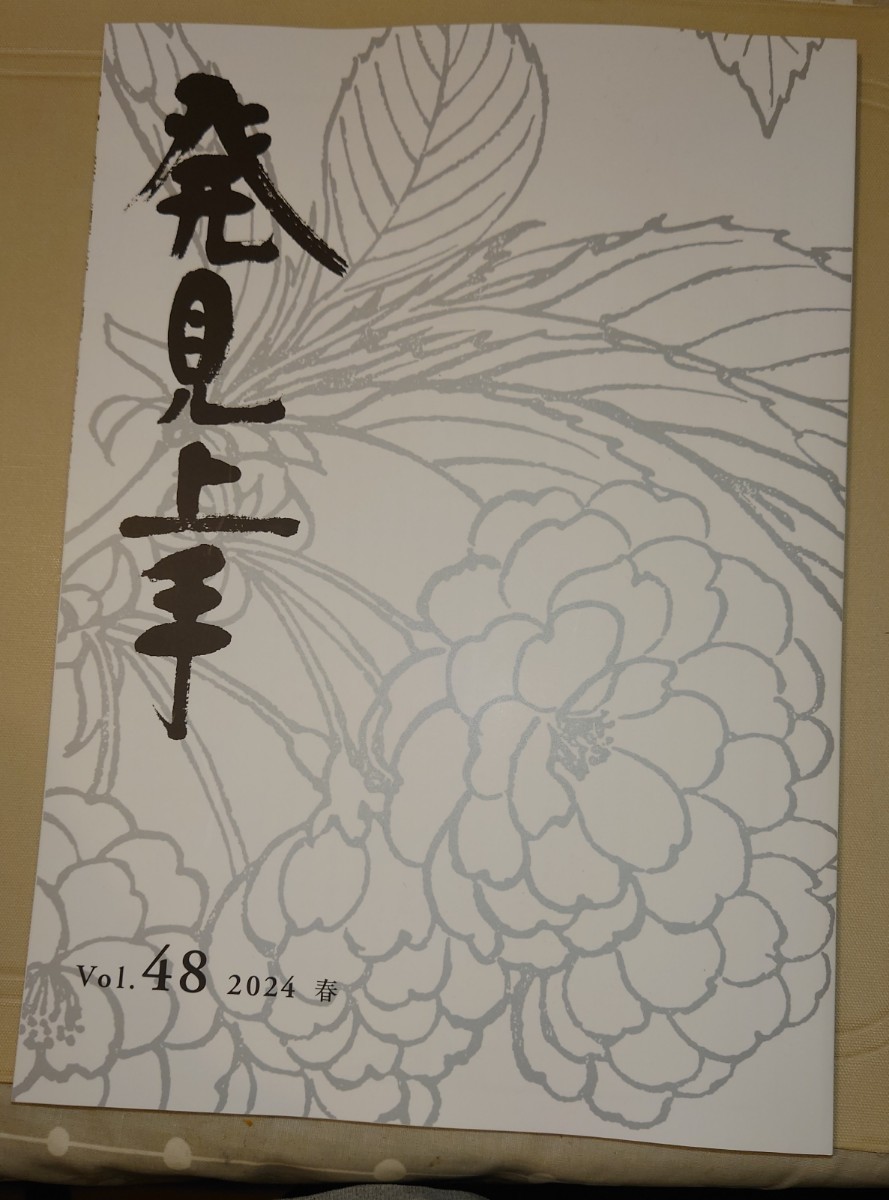 発見上手
Vol.48 2024 春